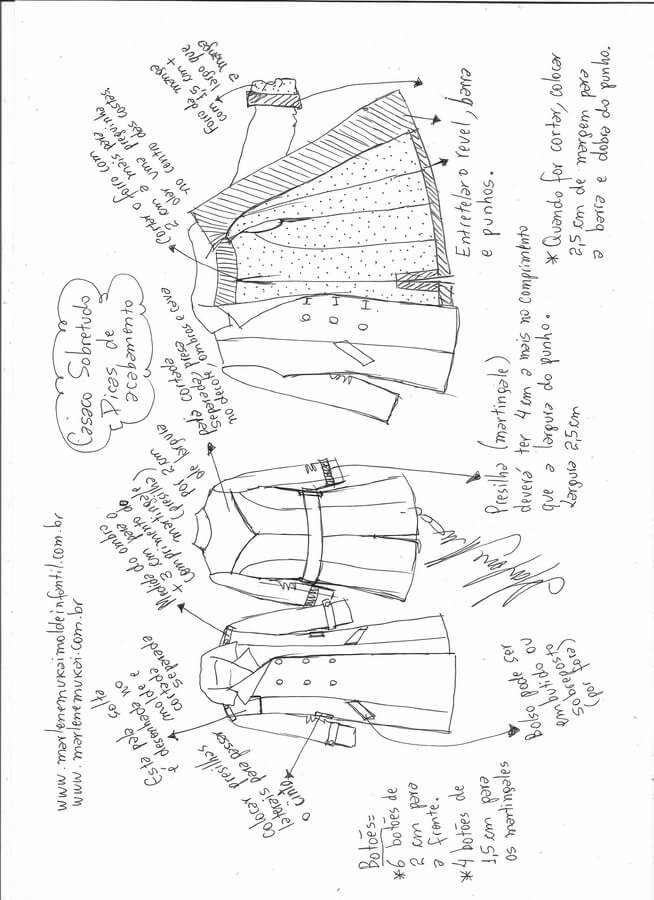 Casaco Sobretudo
Dicas de
acabamento
www.marlenemukaimoldeinfantil.com.br
www.marlenemukai.com.br
Forro da manga
com 1,5 cm +
largo que
a manga
Cortar o forro com
2 cm a mais para
dar uma preguinha
no centro das costas.
Entretelar o revel, barra
e punhos.
* Quando for cortar, colocar
2,5 cm de margem para
a barra e dobra do punho.
pala cortada
separada, presa
no decote, ombros e cava
Presilha (martingale)
deverá ter 4 cm a mais no comprimento
que a largura do punho.
Largura 2,5cm
Medida do ombro
+ 3 cm para o
comprimento do
martingale
(presilha)
por 2 cm
de largura
Esta pala solta
é desenhada no
molde e
cortada
separada
Colocar presilhas
laterais para passar
o cinto
Bolso pode ser
embutido ou
sobreposto
(por fora)
Botões=
*6 botões de
2 cm para
a frente.
*4 botões de
1,5 cm para
os martingales